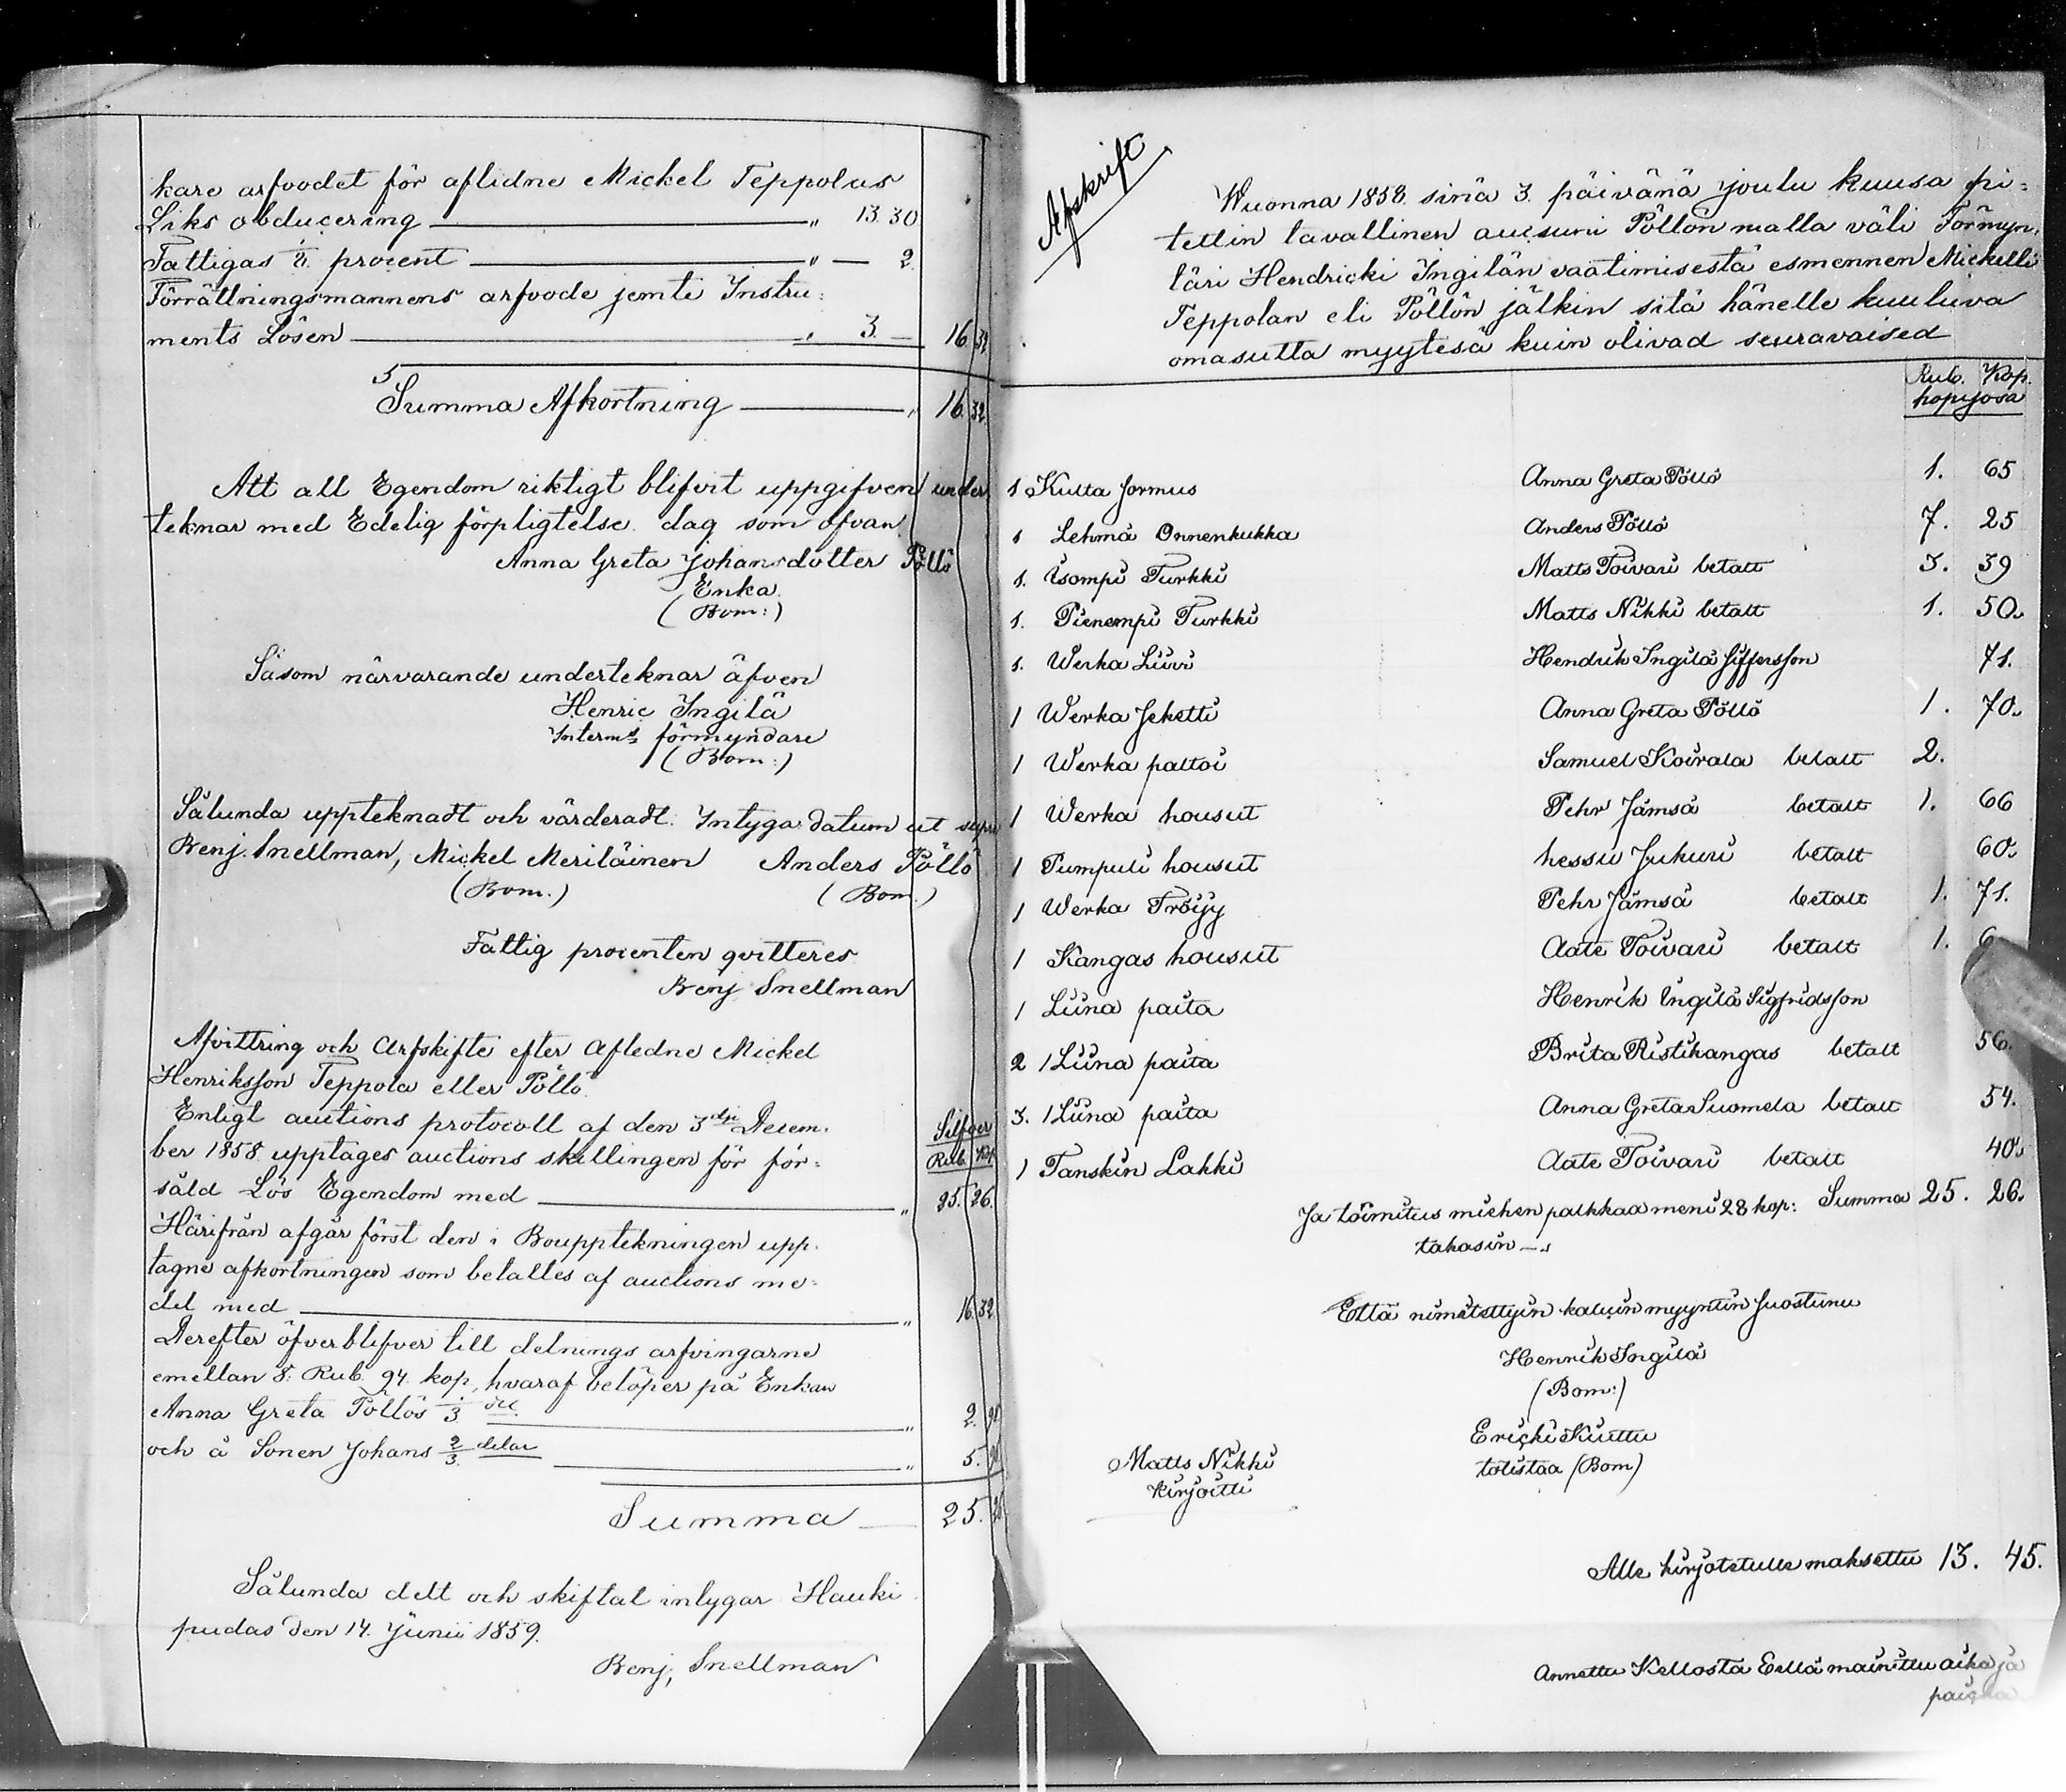 kare arfvodet för aflidne Mickel Teppolas
Liks obducering — " 13. 30
Fattigas procent — " — 2
Förrättningsmannens arfvode jemte Instru:
ments Lösen — " 3. — 16. 32.
Summa Afkortning — " 16. 32.
Att all Egendom riktigt blifvit uppgifven under
teknar med Edelig förpligtelse dag som ofvan
Anna Greta Johansdotter Pöllö
Enka
(Bom:)
Såsom närvarande underteknar äfven
Henric Ingilä
Interms förmyndare
(Bom:)
Sålunda uppteknadt och värderadt. Intyga datum ut supra
Benj. Snellman, Mickel Meriläinen Anders Pöllö
(Bom.) (Bom.)
Fattig procenten qvitteres
Benj Snellman
Afvittring och Arfskifte efter Afledne Mickel
Henriksson Teppola eller Pöllö
Enligt auctions protocoll af den 3dje Decem. Silfver
ber 1858 upptages auctions skillingen för för: Rub. Kop
såld Lös Egendom med — " 25. 26.
Härifrån afgår först den i Boupptekningen upp.
tagne afkortningen som betaltes af auctions me:
del med — " 16. 32
Derefter öfverblifver till delnings arfvingarne
emellan 8: Rub. 94. kop, hvaraf belöper på Enkan
Anna Greta Pöllös 1/3 del — " 2. 98
och å Sonen Johans 2/3 delar — " 5.
Summa — 25. 26
Sålunda delt och skiftat intygar Hauki
pudas den 14. Junii 1859.
Benj, Snellman
Afskrift
Wuonna 1858. sinä 3. päivänä joulu kuusa pi=
tettin tavallinen aucsuni Pöllön malla väli Förmyn,
täri Hendricki Ingilän vaatimisesta esmennen Mickelli
Teppolan eli Pöllön jälkin sitä hänelle kuuluva
omasutta myytesä kuin olivad seuravaised
Rub. Kop.
hopijosa
1 Kulta Sormus Anna Greta Pöllö 1. 65
1 Lehmä Onnenkukka Anders Pöllö 7. 25
1. Isompi Turkki Matts Toivari betalt 3. 39
1. Pienempi Turkki Matts Nikki betalt 1. 50.
1. Werka Liivi Hendrik Ingilä Siffersson 71.
1 Werka Jeketti Anna Greta Pöllö 1. 70.
1 Werka paltoi Samuel Koivala betalt 2.
1 Werka housut Pehr Jämsä betalt 1. 66
1 Pumpuli housut hessu Jukuri betalt 60.
1 Werka Tröijy Pehr Jämsä betalt 1. 71.
1 Kangas housut Aate Toivari betalt 1.
1 Liina paita Henrik Ingilä Sigfridsson
2 1 Liina paita Brita Ristikangas betalt 56.
3. 1 Liina paita Anna Greta Suomela betalt 54.
1 Tanskin Lakki Aate Toivari betalt 40.
Ja toimitus miehen palkkaa meni 28 kop: Summa 25. 26.
takasin —
Että nimitettyin kaluin myyntiin Suostunu
Henrik Ingilä
(Bom:)
Ericki Kiuttu
Matts Nikki totistaa (Bom)
kirjoitti
Alle kirjotetulle maksettu 13. 45.
Annettu Kellosta Eellä mainittu aika ja